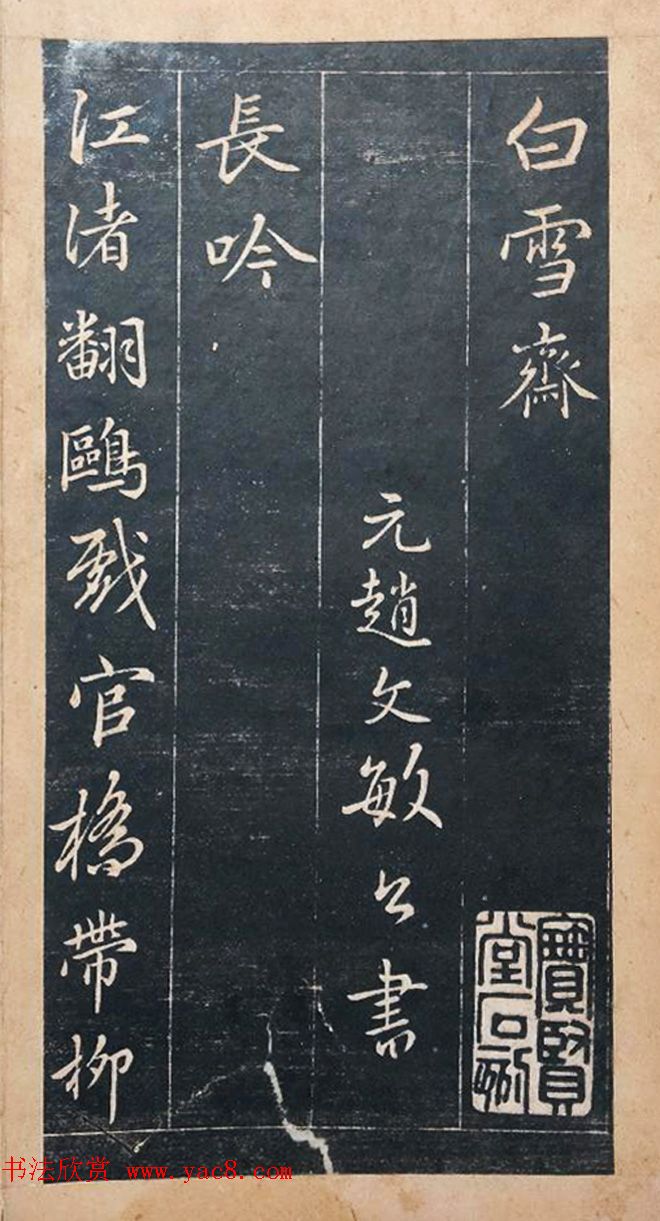 白雪齋
寶賢
堂石刻
元趙文敏公書
長吟
江渚翻鷗戲官橋帶柳
书法欣赏 www.yac8.com